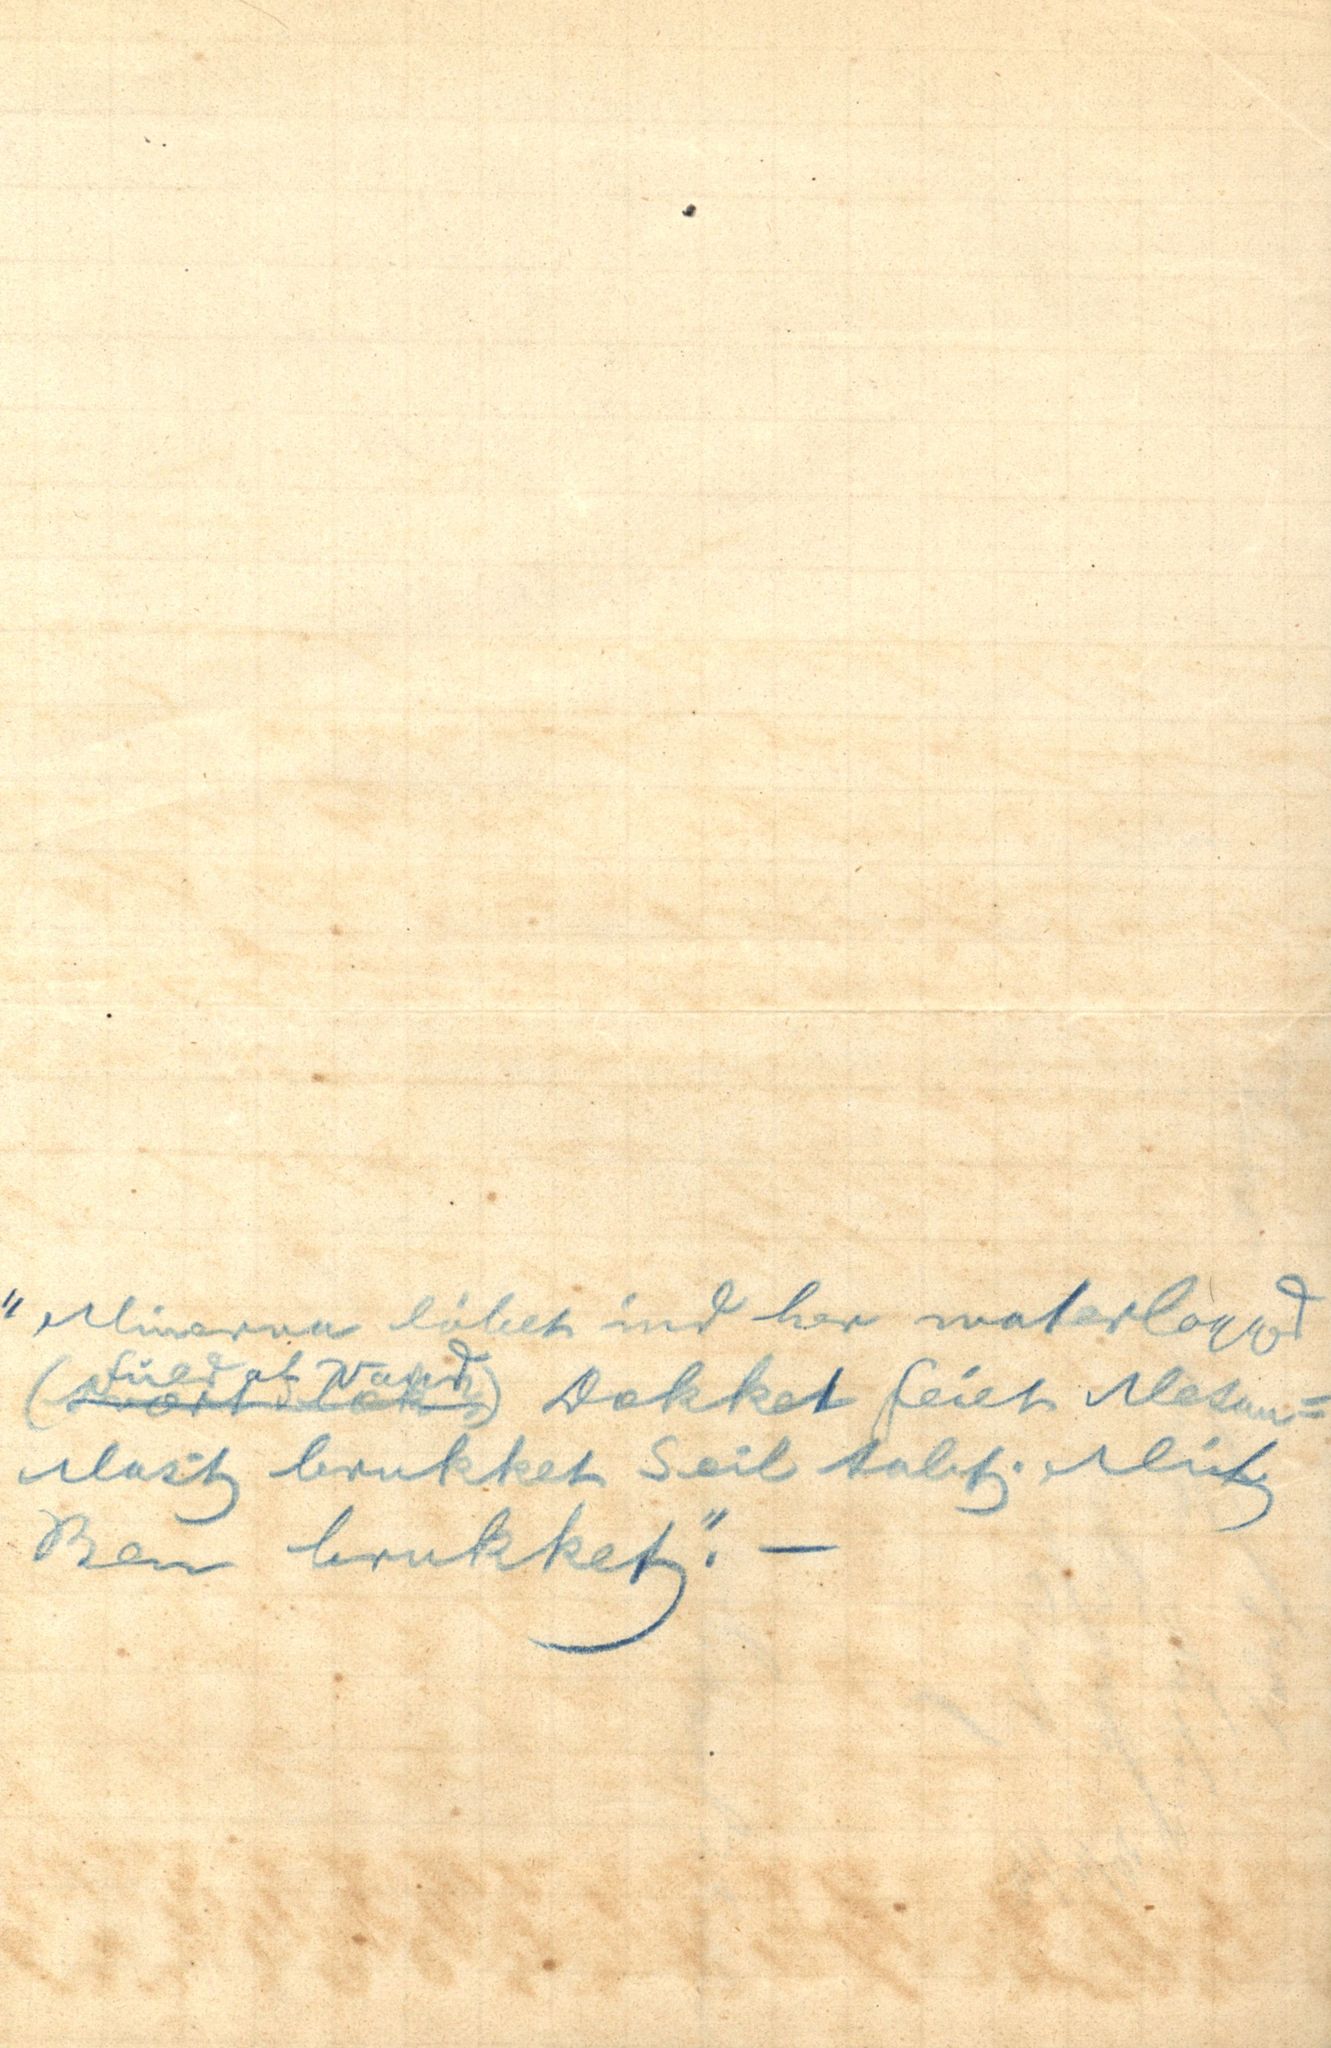 "Minerva løbet ind her waterloggd
fuld af Vand
(svært læk) Dekket feiet Mesan=
Mast brukket Seil tabt. Mit
Ben brukket". —